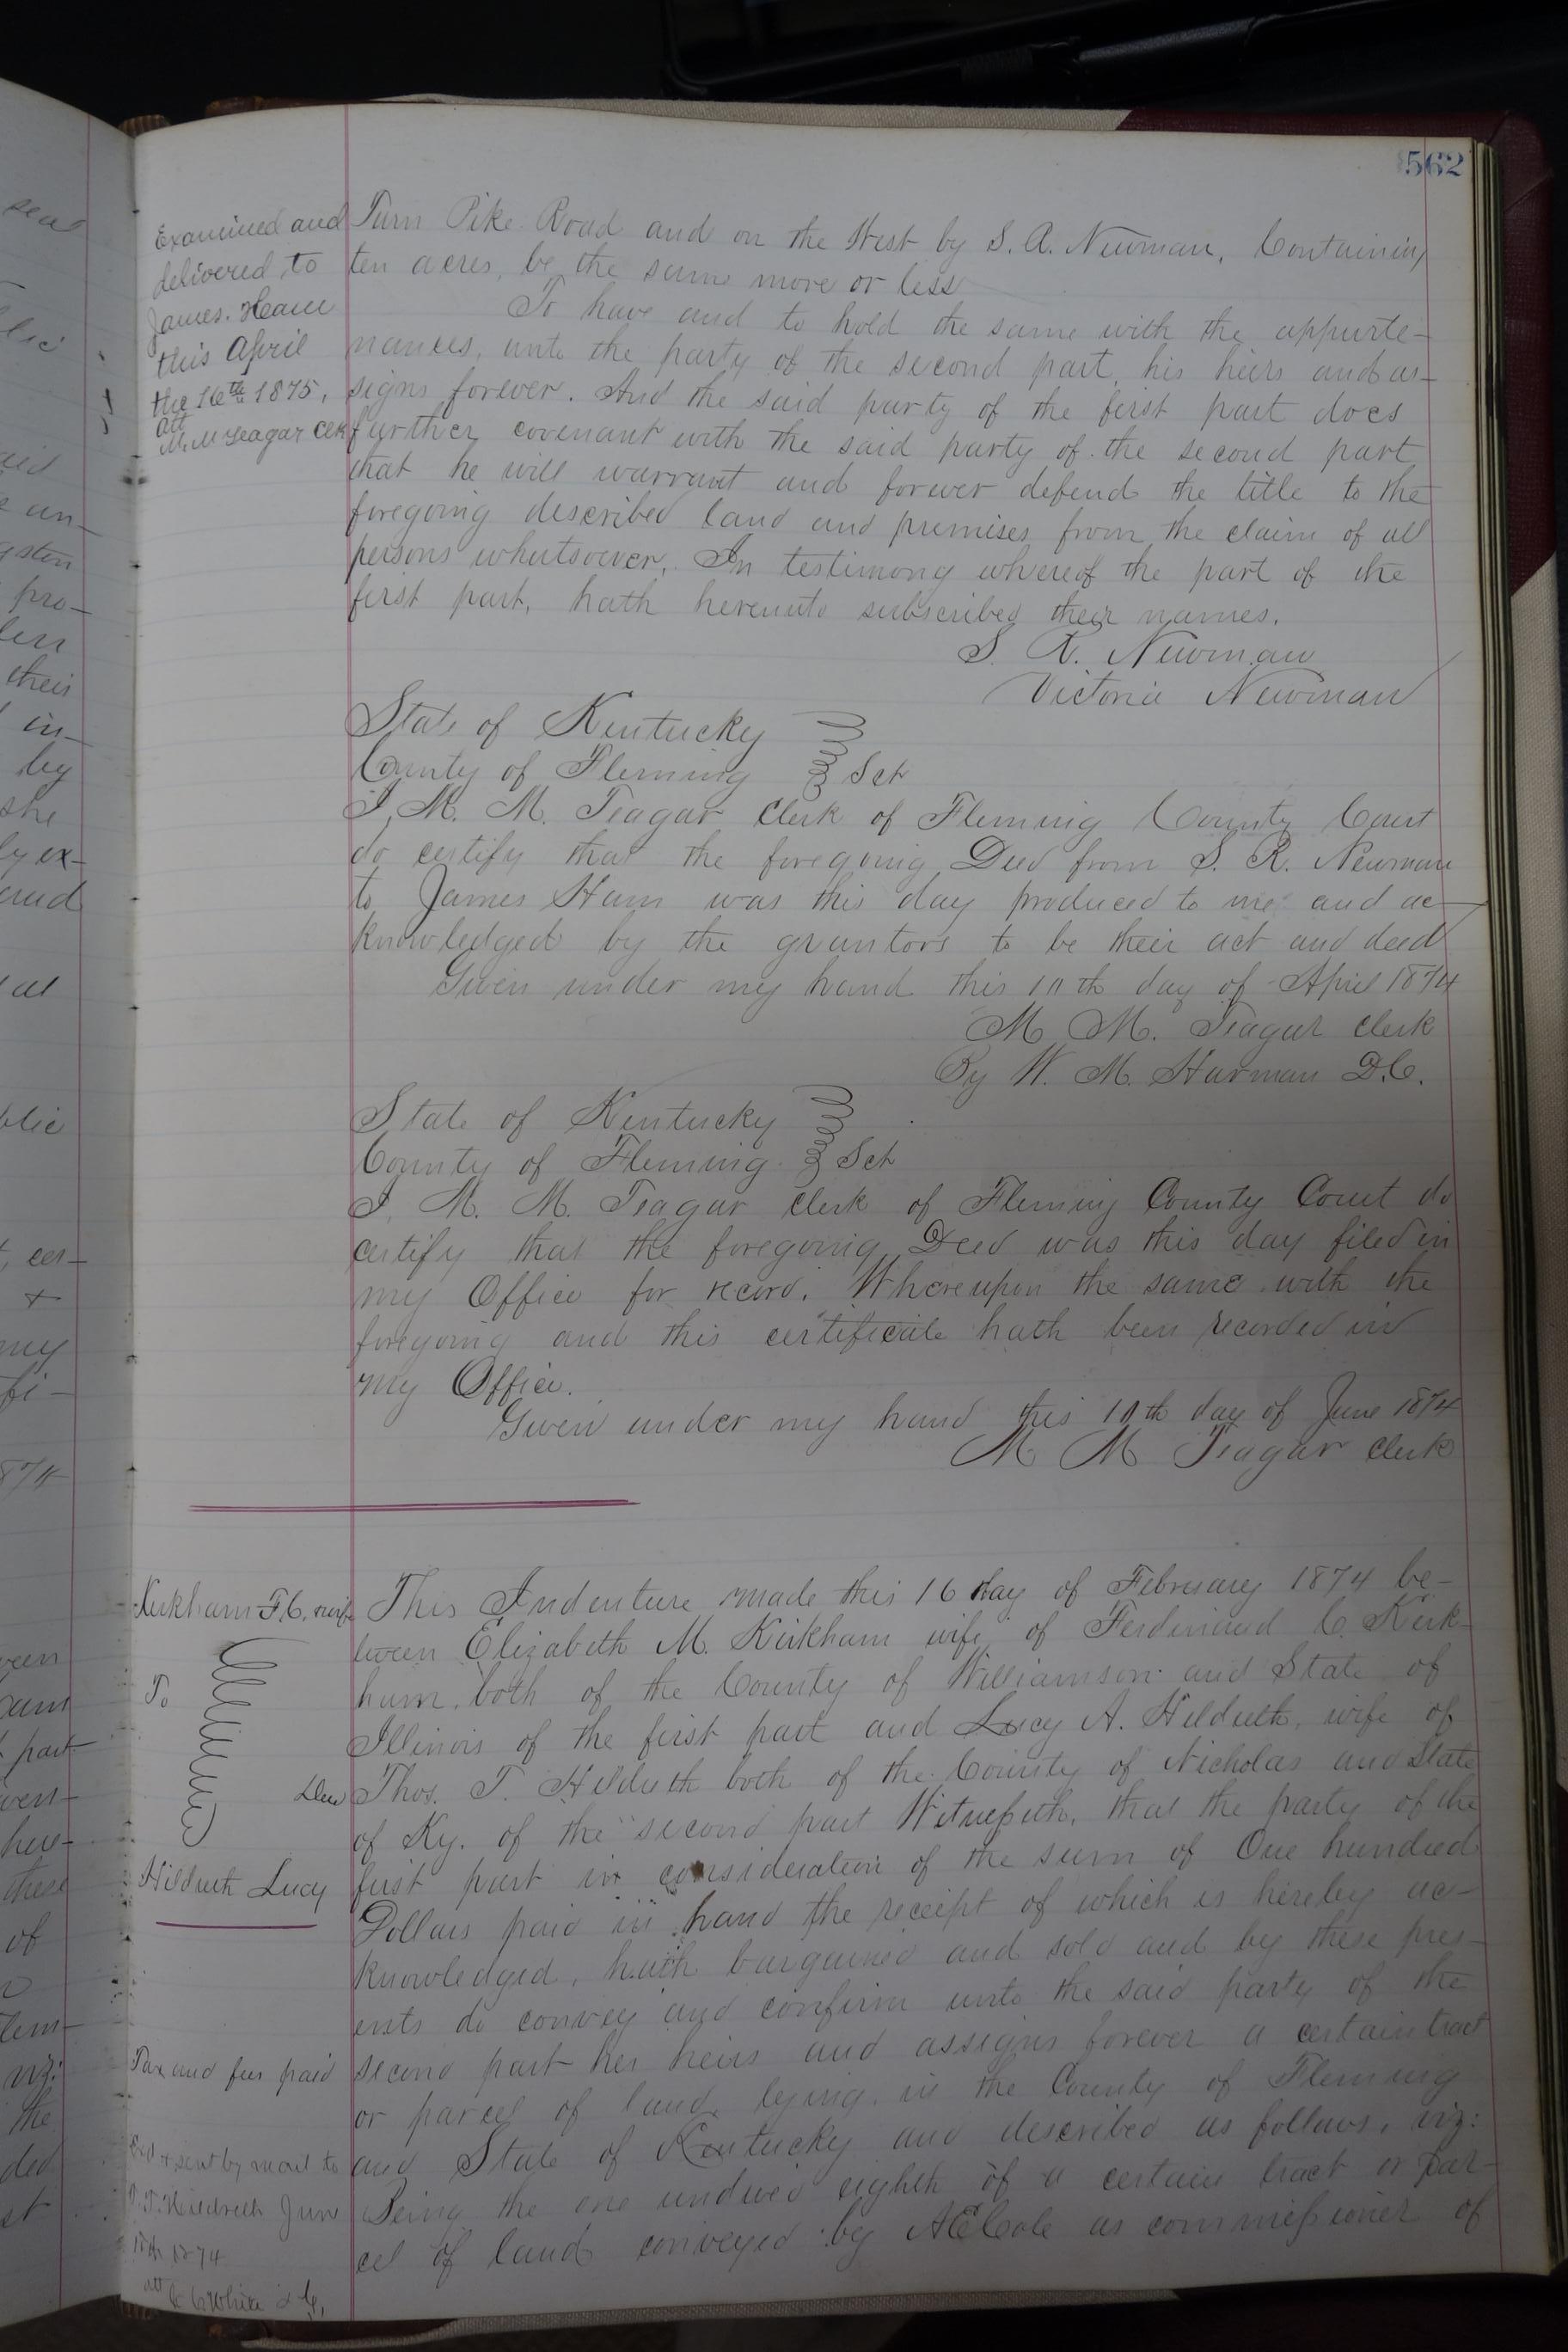 562
Examined and
delivered to
James. Ham
this April
the 16th 1875,
att
M. M Teagar Clk
Turn Pike Road and on the West by S. R. Newman, Containing
ten acres, be the same more or less
To have and to hold the same with the appurte-
nances, unto the party of the second part, his heirs and as-
signs forever. And the said party of the first part does
further covenant with the said party of the second part
that he will warrant and forever defend the title to the
foregoing described land and premises from the claim of all
persons whatsoever. In testimony whereof the part of the
first part, hath hereunto subscribed their names.
S. R. Newman
Victoria Newman
State of Kentucky
County of Fleming Sct
I, M. M. Teagar Clerk of Fleming County Court
do certify that the foregoing Deed from S. R. Newman
to James Ham was this day produced to me and ac-
knowledged by the grantors to be their act and deed
Given under my hand this 10th day of April 1874
M M. Teagar Clerk
By W. M. Harman D.C.
State of Kentucky
County of Fleming Sct
I M. M. Teagar Clerk of Fleming County Court do
certify that the foregoing Deed was this day filed in
my Office for record. Whereupon the same with the
foregoing and this certificate hath been recorded in
my Office.
Given under my hand this 10th day of June 1874
M M Teagar Clerk
Kirkham F. C. wife
To
Deed
Hildreth Lucy
Tax and fees paid
sent by mail to
T. T. Hildreth June
1874
att
C C White D C,
This Indenture made this 16 day of February 1874 be-
tween Elizabeth M. Kirkham wife of Ferdinand C. Kirk-
ham, both of the County of Williamson and State of
Illinois of the first part and Lucy A. Hildreth, wife of
Thos. T. Hildreth both of the County of Nicholas and State
of Ky. of the second part Witnesseth, that the party of the
first part in consideration of the sum of One hundred
Dollars paid in hand the receipt of which is hereby ac-
knowledged, hath bargained and sold and by these pres-
ents do convey and confirm unto the said party of the
second part her heirs and assigns forever a certain tract
or parcel of land, lying in the County of Fleming
and State of Kentucky and described as follows, viz:
Being the one undivid eighth of a certain tract or par-
cel of land conveyed by A E Cole as commissioner of